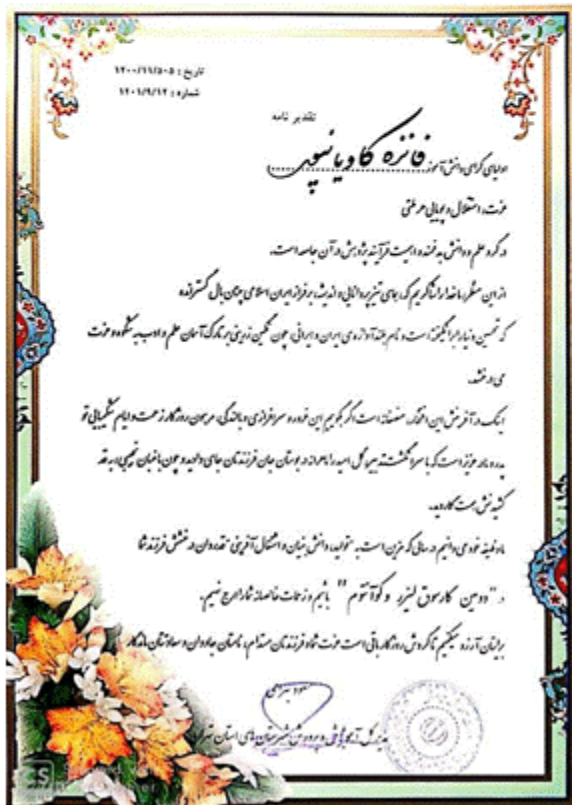 تاریخ : ۱۴۰۰/۱۱/۵۰۵
شماره : ۱۴۰۱/۹/۱۲
تقدیر نامه
اولیای گرامی دانش آموز فائزه کاویانپور
عزت، استقلال و پویایی هر ملتی
در گرو علم و دانش به فنده و اهمیت فرآیند پژوهش در آن جامعه است.
از این منظر، ما خدا را شاکریم که همای تیزپر دانایی و اندیشه بر فراز ایران اسلامی چنان بال گسترانده
که تحسین دنیا را برانگیخته است و نام بلند آوازه ی ایران و ایرانی، چون نگین زرینی بر تارک آسمان علم و ادب به شکوه و عزت
می درخشد.
اینک در آفرینش این افتخار، منصفانه است اگر بگوییم این غرور و سرافرازی و بالندگی، مرهون روزگار زحمت و ایام شکیبایی تو
پدر و مادر عزیز است که با سرانگشت تدبیر، گل امید را ماهرانه در بوستان جان فرزندتان جای دادید و چون باغبان به قد
کشیدنش همت گماردید.
ما وظیفه خود می دانیم در سالی که مزین است به تولید، دانش بنیان و اشتغال آفرینی قدردان درخشش فرزند شما
در "دومین کارسوق لیزر و کوآنتوم" باشیم و زحمات خالصانه شما را ارج نهیم.
برایتان آرزو میکنیم تا گردش روزگار باقی است عزت شما و فرزندتان مستدام، نامتان جاودان و سعادتتان ماندگار
مدیرکل آموزش و پرورش شهرستان های استان تهران
CS